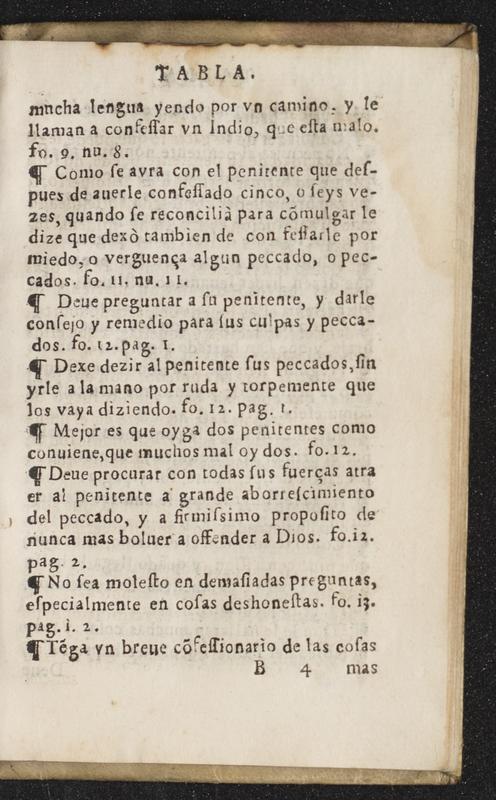 TABLA.
mucha lengua yendo por vn camino, y le
llaman a confeſſar vn Indio, que eſta malo.
fo. 9. nu. 8.
¶ Como ſe avra con el penitente que deſ-
pues de auerle confeſſado cinco, o ſeys ve-
zes, quando ſe reconcilià para cõmulgar le
dize que dexò tambien de con feſſarle por
miedo, o verguença algun peccado, o pec-
cados. fo. 11. nu. 11.
¶ Deue preguntar a ſu penitente, y darle
conſejo y remedio para ſus culpas y pecca-
dos. fo. 12. pag. 1.
¶ Dexe dezir al penitente ſus peccados, ſin
yrle a la mano por ruda y torpemente que
los vaya diziendo. fo. 12. pag. 1.
¶ Mejor es que oyga dos penitentes como
conuiene, que muchos mal oy dos. fo. 12.
¶ Deue procurar con todas ſus fuerças atra
er al penitente a grande aborreſcimiento
del peccado, y a firmiſsimo propoſito de
nunca mas boluer a offender a Dios. fo. 12.
pag. 2.
¶ No ſea moleſto en demaſiadas preguntas,
eſpecialmente en coſas deshoneſtas. fo. 13.
pag. 1. 2.
¶ Tẽga vn breue cõfeſſionario de las coſas
B 4 mas